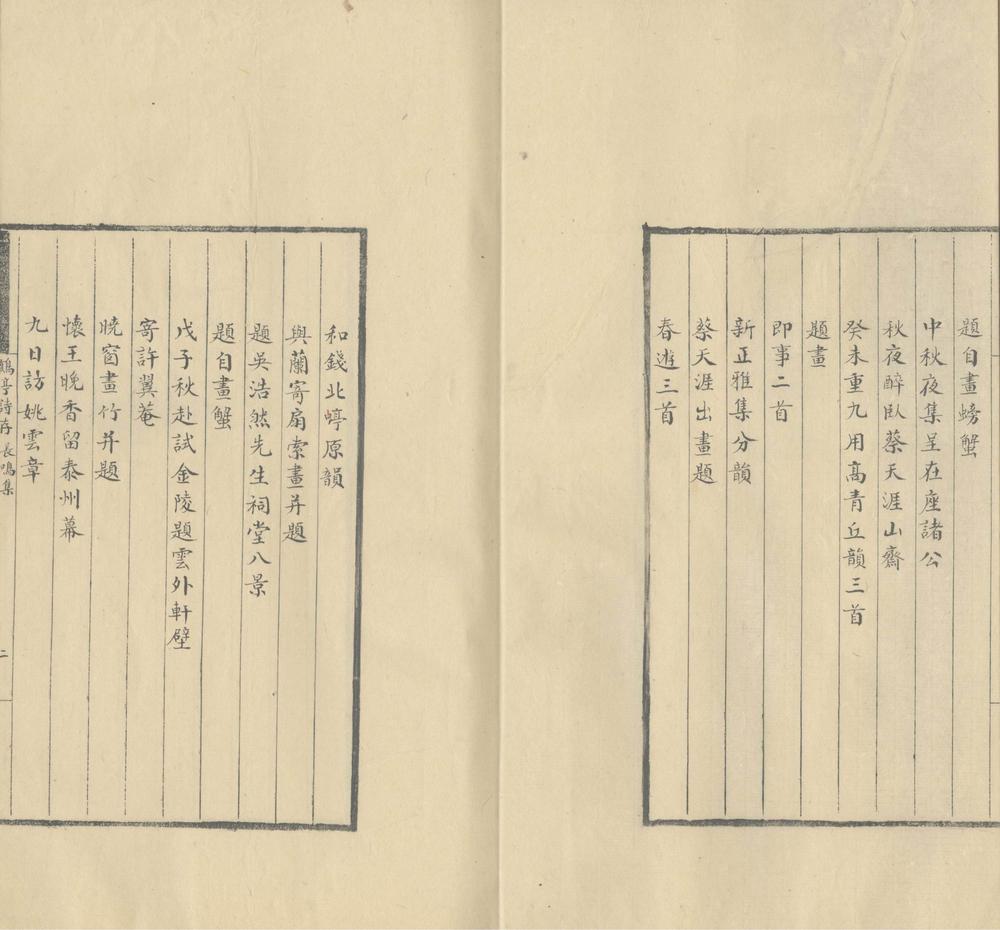 題自畫螃蟹
中秋夜集呈在座諸公
秋夜醉臥蔡天涯山齋
癸未重九用高青丘韻三首
題畫
即事二首
新正雅集分韻
蔡天涯出畫題
春遊三首
和錢北㟥原韻
與蘭寄扇索畫并題
題吳浩然先生祠堂八景
題自畫蟹
戊子秋赴試金陵題雲外軒壁
寄許翼菴
曉窗畫竹并題
懷王晚香留泰州幕
九日訪姚雲章
亭詩存 長鳴集
二